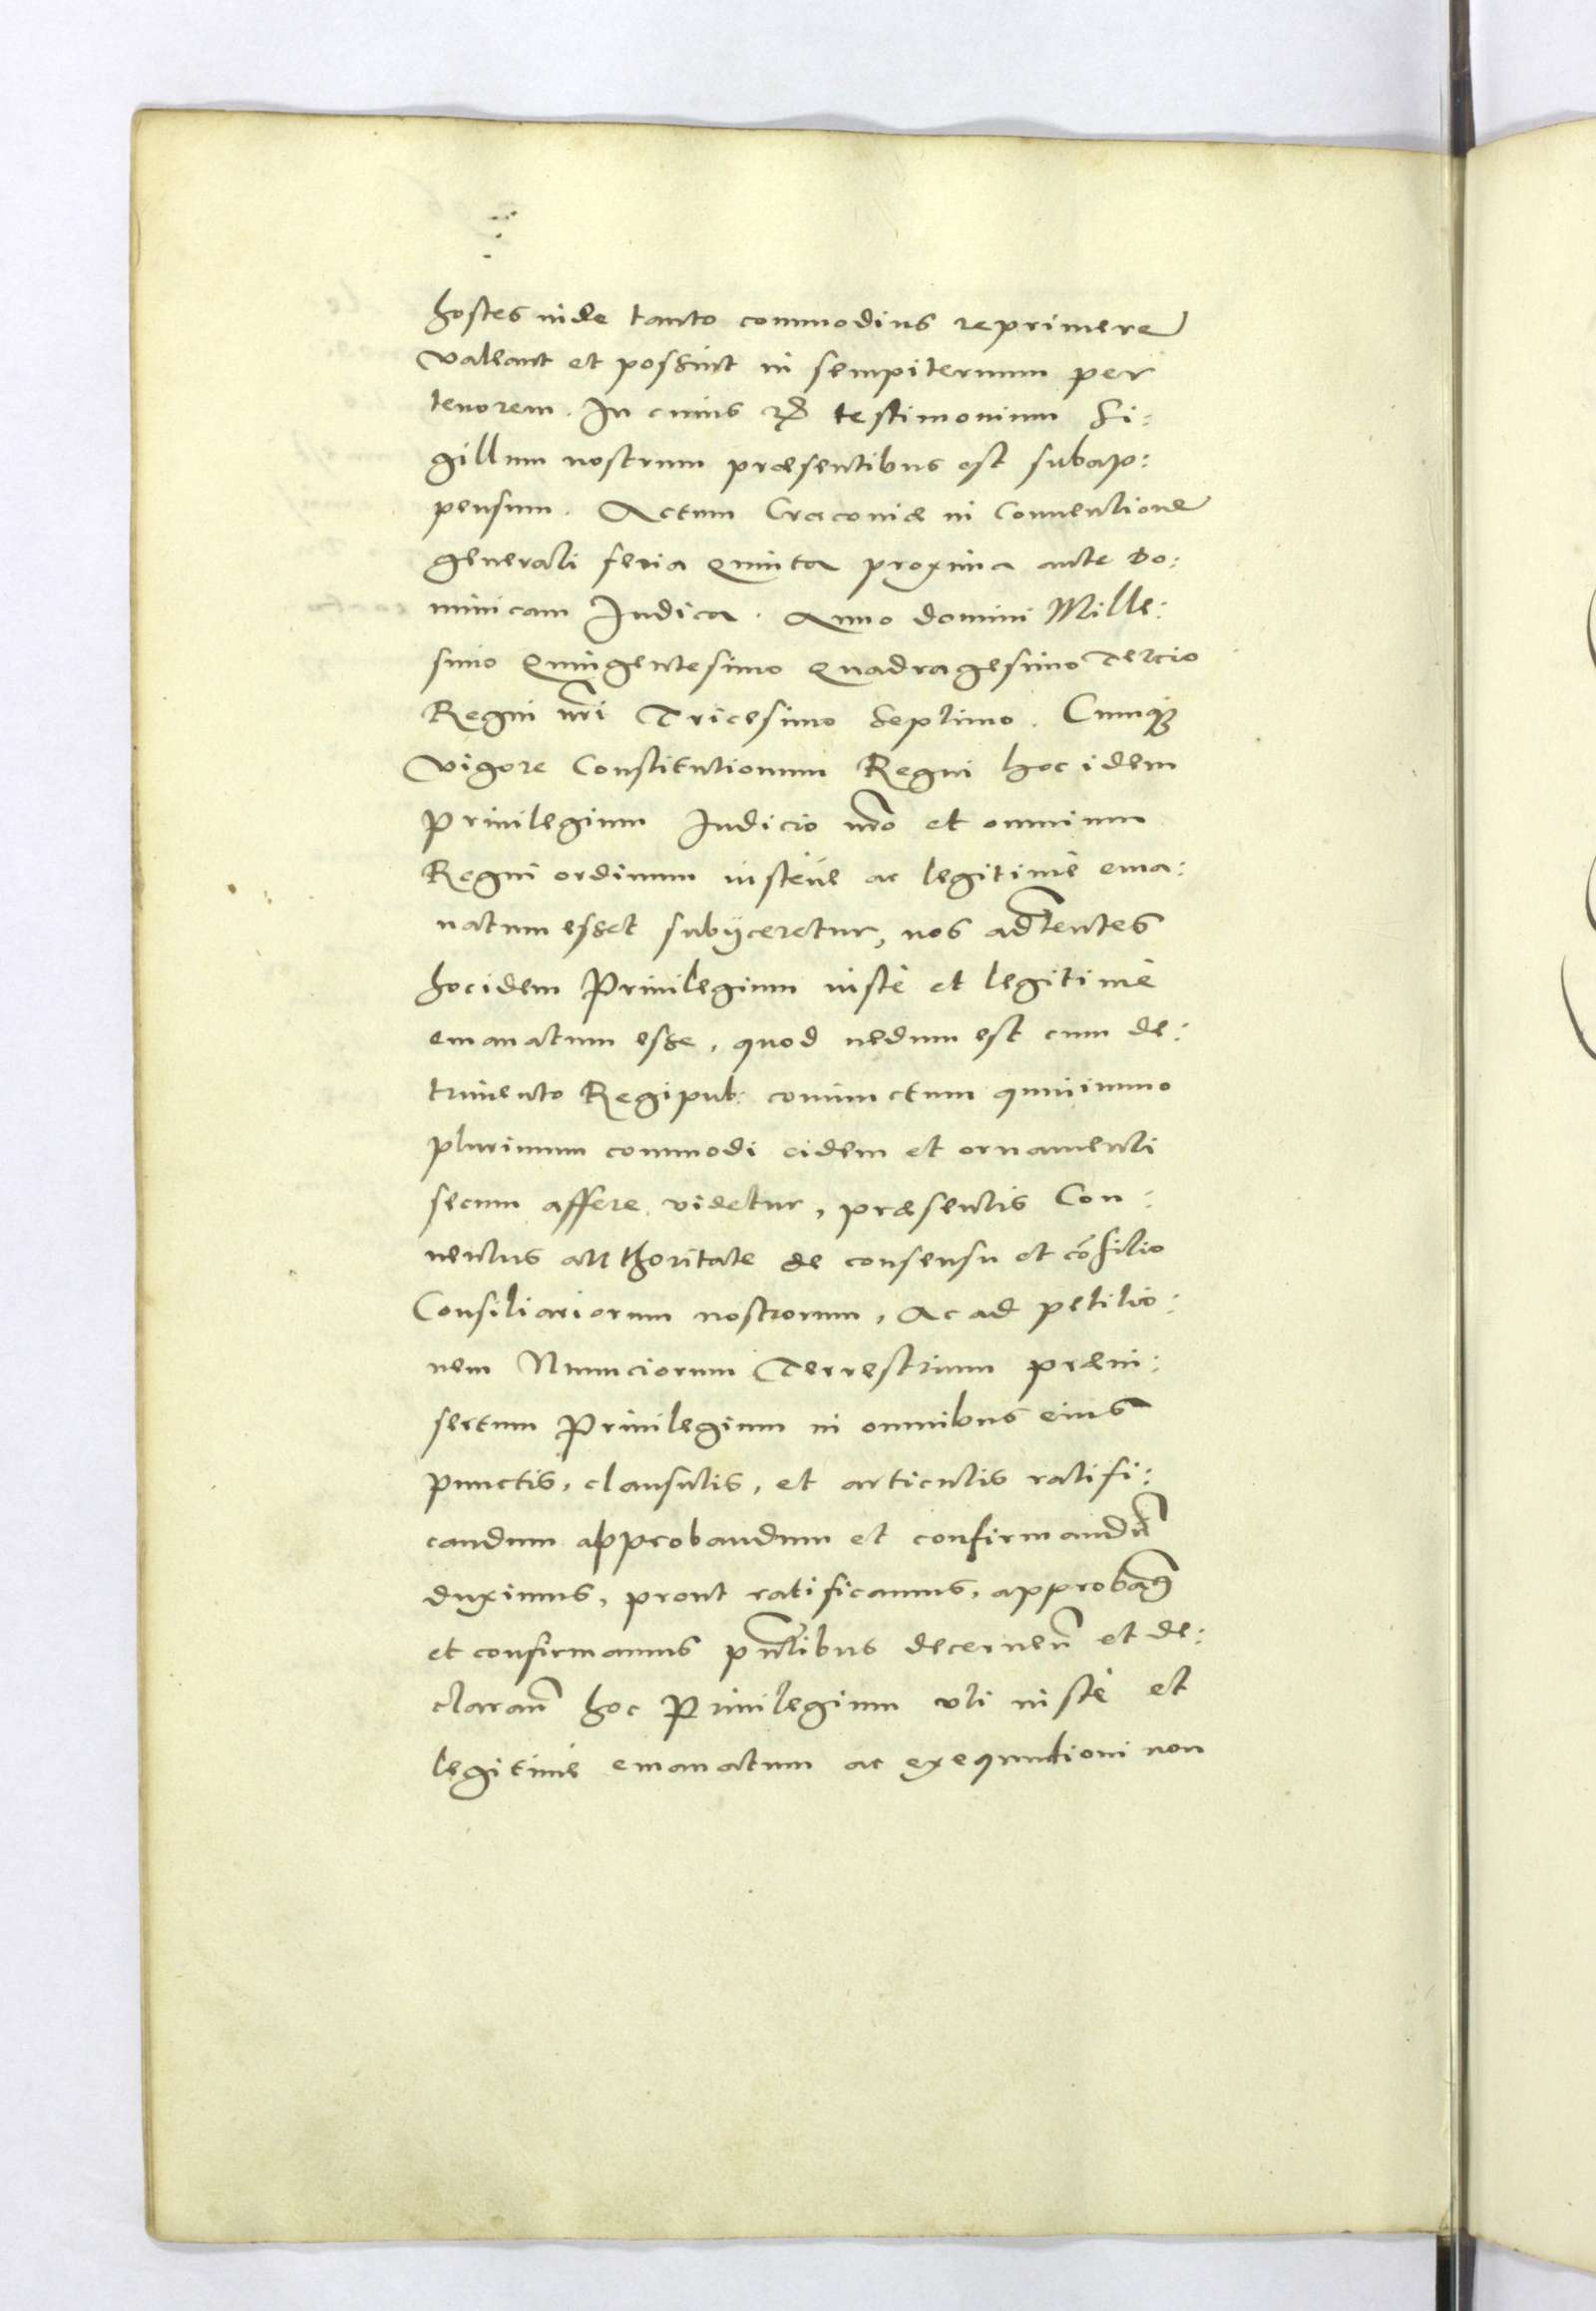 hostes inde tanto commodius reprimere
valeant et possint in sempiternum per
tenorem. In cuius rei testimonium Si:
gillum nostrum præsentibus est subap:
pensum. Actum Cracoviæ in Conventione
generali feria Quinta proxima ante Do:
minicam Iudica. Anno domini Mille:
simo Quingentesimo Quadragesimo Tercio
Regni nri Tricesimo Septimo. Cumq3
vigore Constitutionum Regni hoc idem
Privilegium Iudicio nro et omnium
Regni ordinum iustene ac legitimè ema:
natum esset subijceretur, nos adtentes
hoc idem Privilegium iustè et legitimè
emanatum esse, quod nedum est cum de:
trimento Regipub: coniunctum quinimmo
plurimum commodi eidem et ornamenti
secum affere videtur, præsentis Con:
ventus authoritate de consensu et cōsilio
Consiliariorum nostrorum, Ac ad petitio:
nem Nunciorum Terrestrium præin:
sertum Privilegium in omnibus eius
punctis, clausulis, et articulis ratifi:
candum approbandum et confirmandū
duximus, prout ratificamus, approbam9
et confirmamus pntibus decerneñ et de:
clarañ hoc Privilegium uti iustè et
legitimè emanatum ac exequutioni non